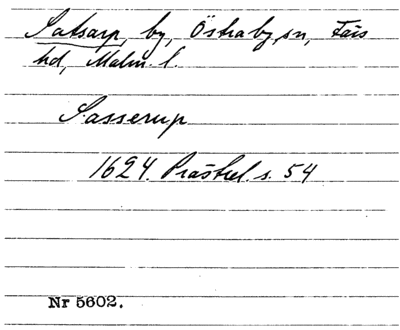 Satsarp, by, Östraby sn, Färs
hd, Malm. l.
Sasserup
1624. Prästrel. s. 54
Nr 5602.